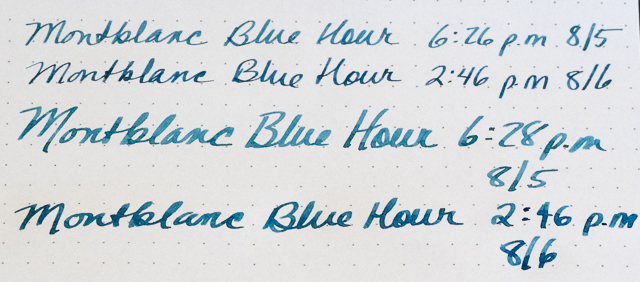 Montblanc Blue Hour 6:26 p.m 8/5
Montblanc Blue Hour 2:46 p.m 8/6
Montblanc Blue Hour 6:28 p.m
8/5
Montblanc Blue Hour 2:46 p.m
8/6